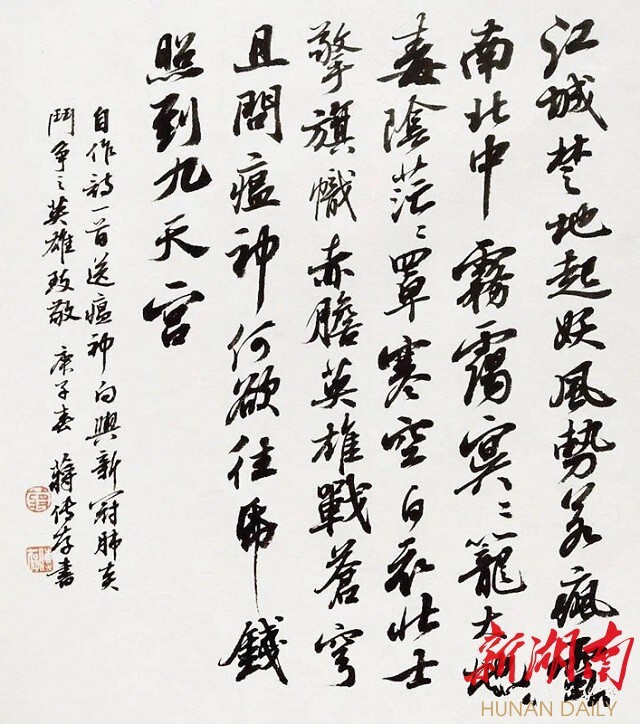 江城楚地起妖風勢若瘋
南北中霧靄冥〻籠大地
毒陰茫〻罩寒空白衣壯士
擎旗幟赤膽英雄戰蒼穹
且問瘟神何欲往帋錢
照到九天宮
自作詩一首送瘟神向與新冠肺炎
鬥爭之英雄致敬 庚子春 蔣傳存書
新湖南
HUNAN DAILY